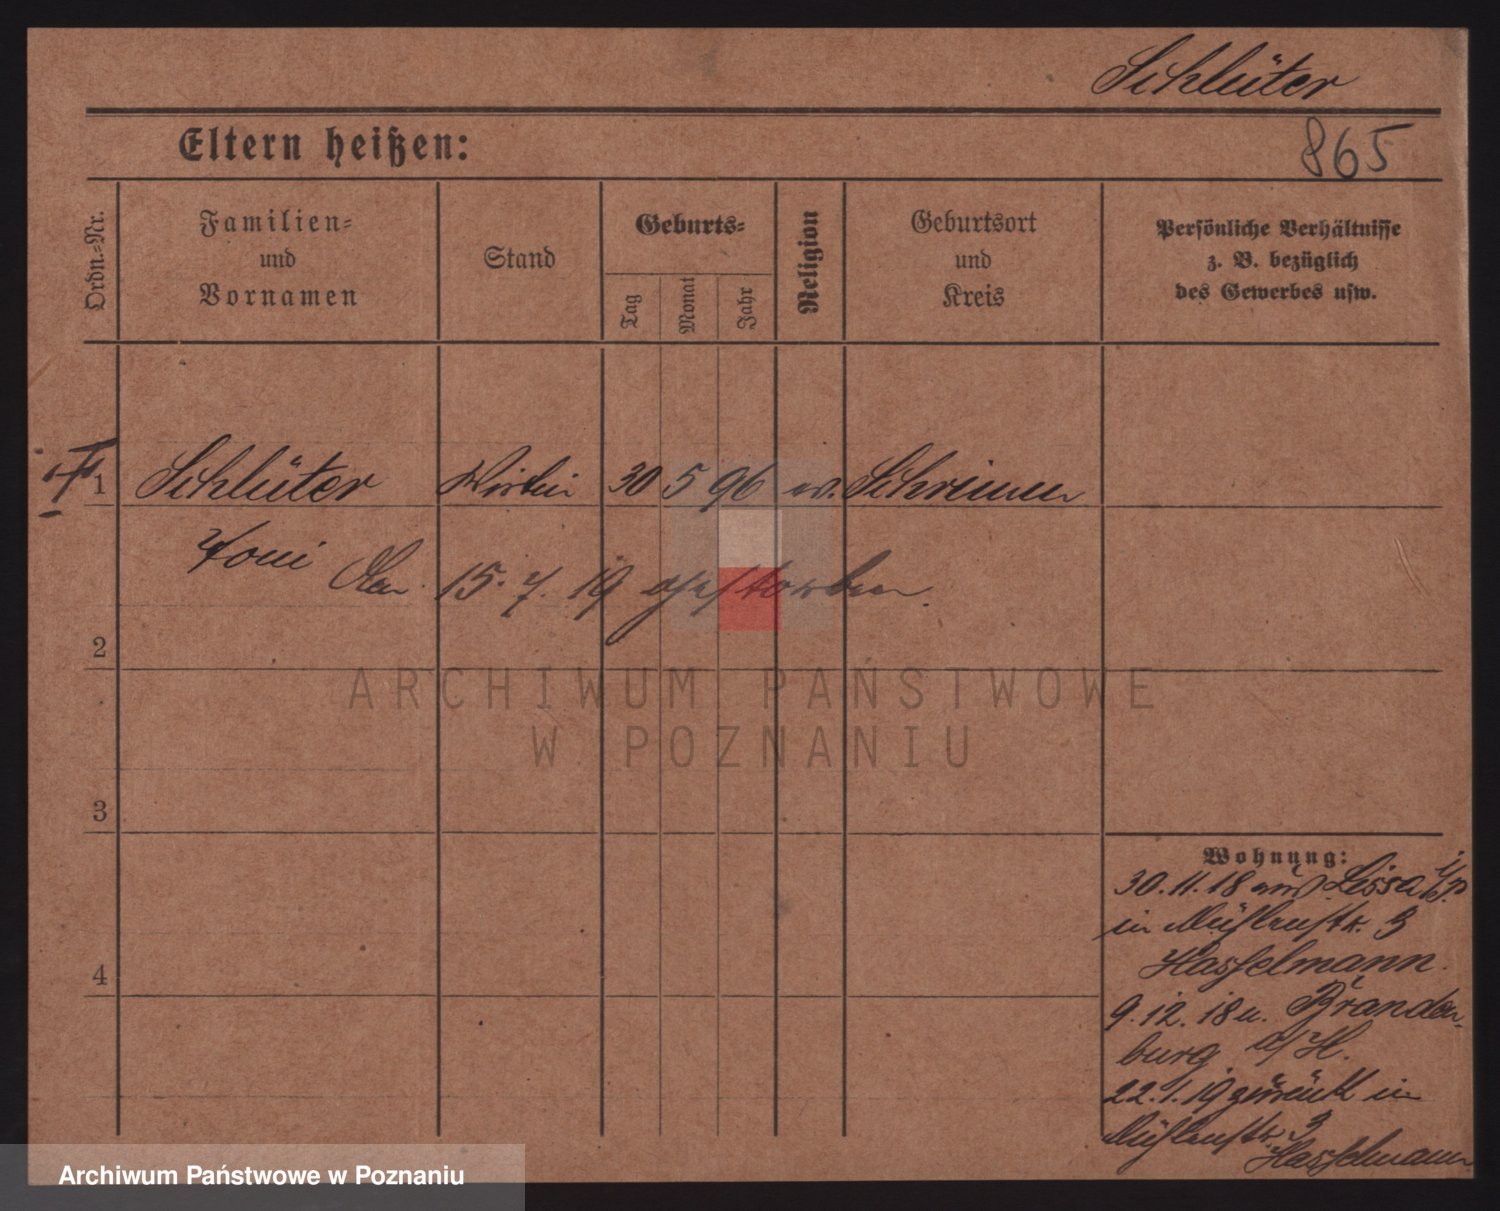 Schlüter
Eltern heißen:
865
Ordn.-Nr.
Familien-
und
Vornamen
Stand
Geburts-
Tag
Monat
Jahr
Religion
Geburtsort
und
Kreis
Persönliche Verhältnisse
z. B. bezüglich
des Gewerbes usw.
1 Schlüter 30 5 96
Toni
Am 15. 7. 19 gestorben.
2
3
4
ARCHIWUM PAŃSTWOWE
W POZNANIU
Wohnung:
30.11.18 aus Lissa i/P
in Mühlenstr. 3
Hasselmann.
9.12.18 n. Branden-
burg a/H.
22.1.19 zurück in
Mühlenstr. 3
Hasselmann
Archiwum Państwowe w Poznaniu